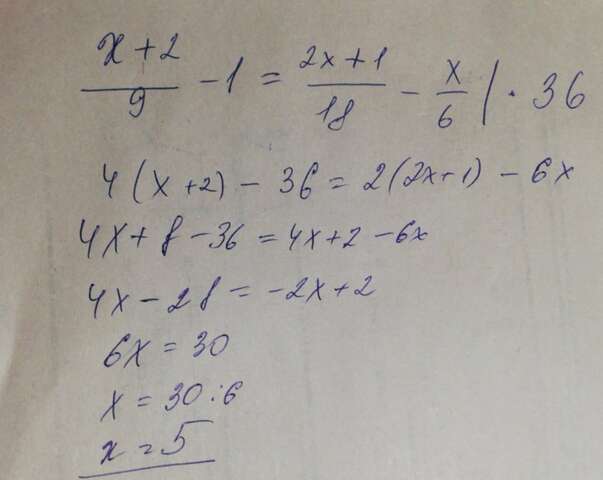 (x+2)/9 - 1 = (2x+1)/18 - x/6 | · 36
4(x+2) - 36 = 2(2x+1) - 6x
4x+8-36 = 4x+2-6x
4x-28 = -2x+2
6x = 30
x = 30:6
x = 5